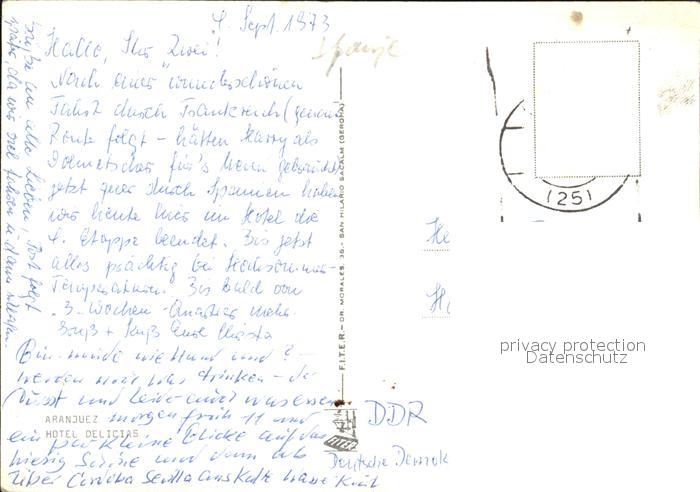 4. Sept. 1973
Hallo, Ihr Zwei!
Spanje
Nach einer wunderschönen
Fahrt durch Frankreich (genaue
Route folgt - hätten Harry als
Dolmetscher für's Menu gebraucht
jetzt quer durch Spanien haben
wir heute hier im Hotel die
4. Etappe beendet. Bis jetzt
alles prächtig bei Hochsommer-
Temperaturen. Bis bald vom
3-Wochen-Quartier mehr.
Gruß + Kuß Eure Christa
Bin müde wie Hund und
werden noch was trinken - der
Durst und leider auch was essen
morgen früh 11 und
ein paar kleine Blicke auf das
hiesig Schöne und dann ab
über Cordoba Sevilla ans Kalte Nasse
Grüße an alle Lieben, Post folgt
später, da wir viel fahren u. dann
ARANJUEZ
HOTEL DELICIAS
F.I.T.E.R. - DR. MORALES, 36 - SAN HILARIO SACALM (GERONA)
(25)
He
DDR
Deutsche Demok
privacy protection
Datenschutz